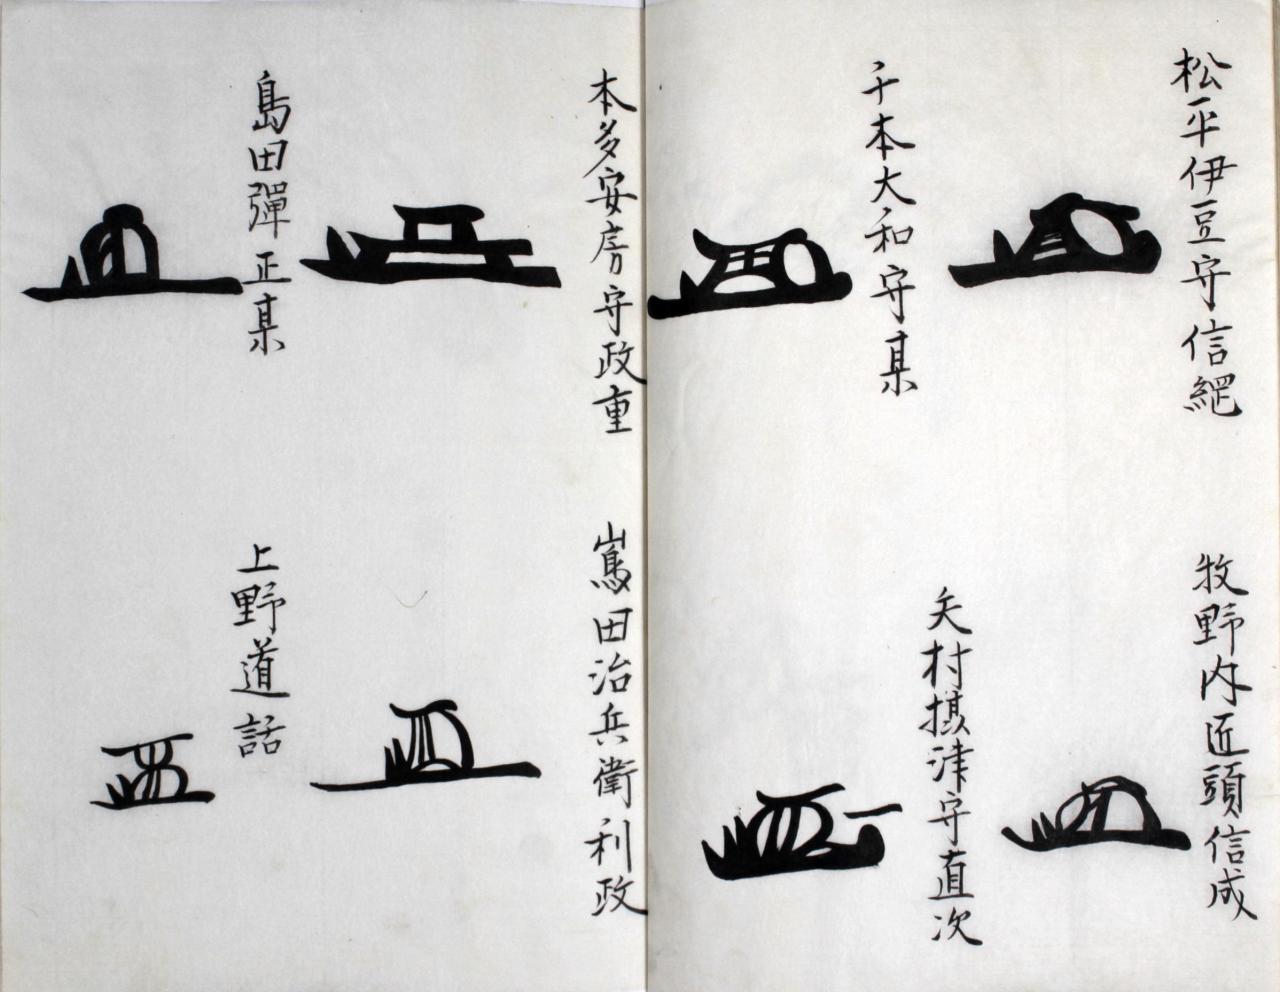 松平伊豆守信綱
牧野内匠頭信成
千本大和守某
矢村摂津守直次
本多安房守政重
嶌田治兵衛利政
島田彈正某
上野道話